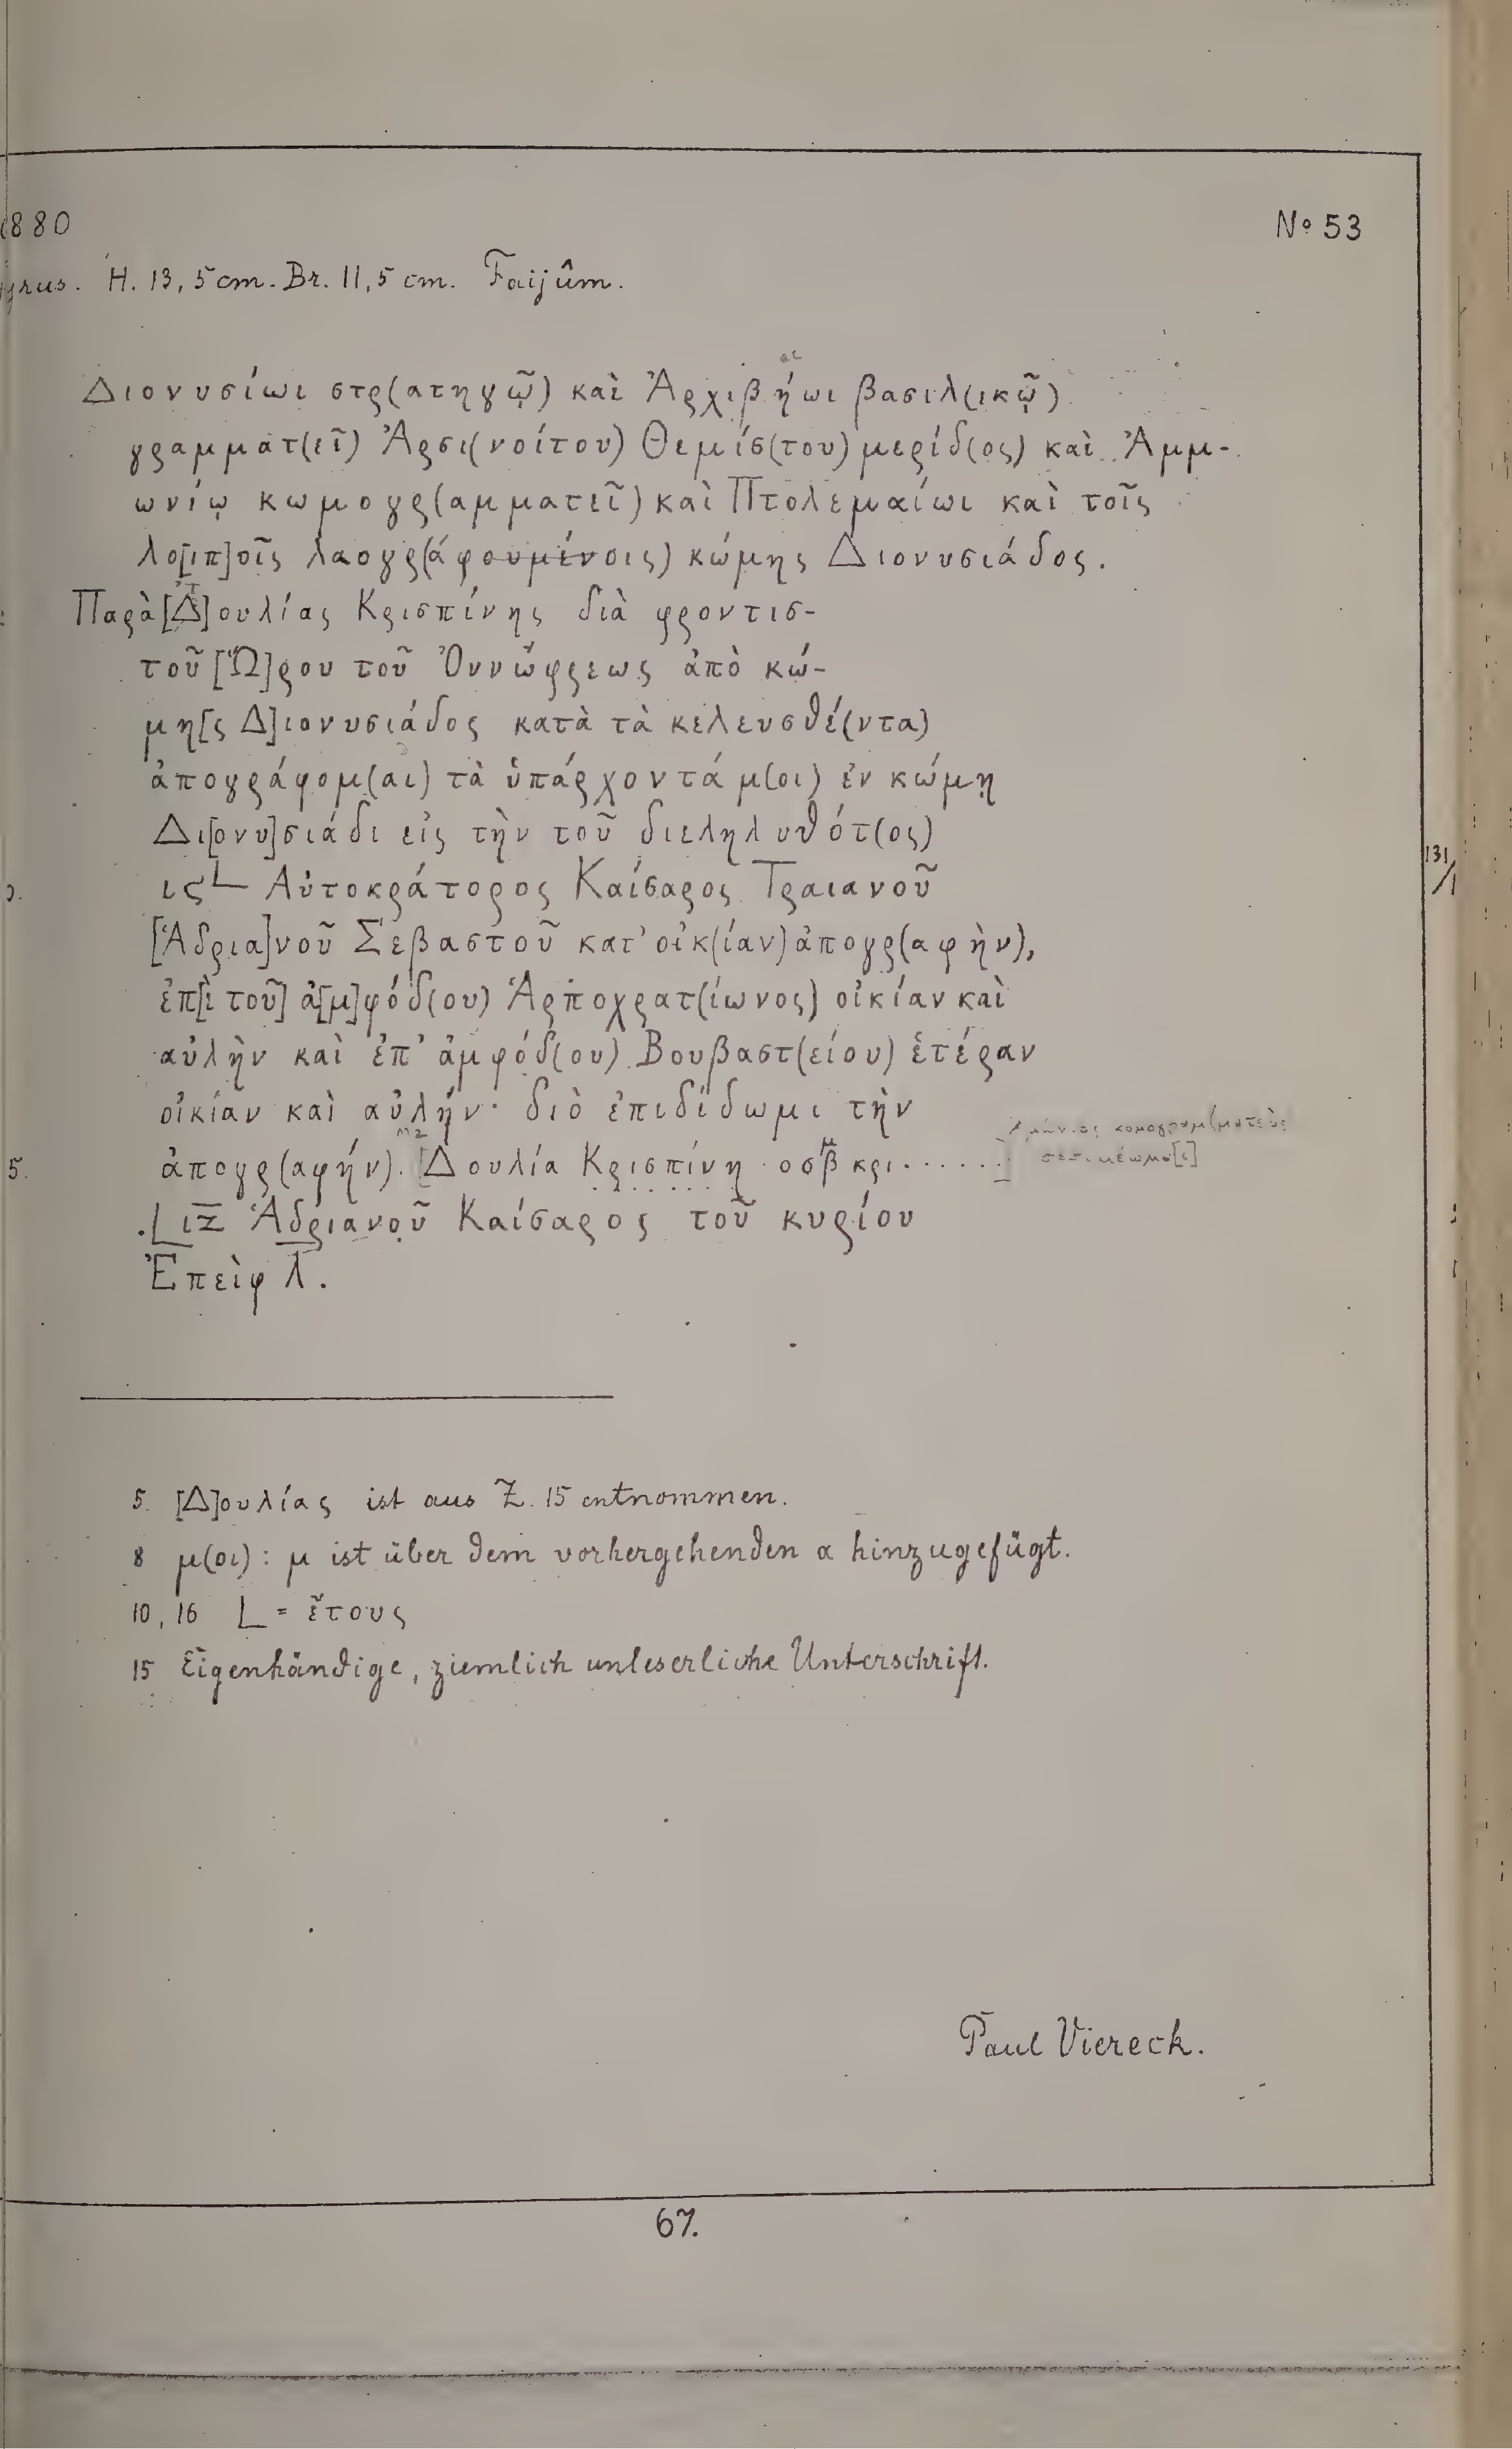 1880
No 53
H. 13,5 cm. Br. 11,5 cm. Faijûm.
Διονυσίωι στρ(ατηγῷ) καὶ Ἀρχιβήωι βασιλ(ικῷ)
γραμματ(εῖ) Ἀρσι(νοίτου) Θεμίσ(του) μερίδ(ος) καὶ Ἀμμ-
ωνίῳ κωμογρ(αμματεῖ) καὶ Πτολεμαίωι καὶ τοῖς
λο[ιπ]οῖς λαογρ(άφουμένοις) κώμης Διονυσιάδος.
Παρὰ [Δ]ουλίας Κρισπίνης διὰ φροντισ-
τοῦ [Ὥ]ρου τοῦ Ὀννώφρεως ἀπὸ κώ-
μη[ς Δ]ιονυσιάδος κατὰ τὰ κελευσθέ(ντα)
ἀπογράφομ(αι) τὰ ὑπάρχοντά μ(οι) ἐν κώμῃ
Δι[ονυ]σιάδι εἰς τὴν τοῦ διεληλυθότ(ος)
ιϛ L Αὐτοκράτορος Καίσαρος Τραιανοῦ
[Ἁδρια]νοῦ Σεβαστοῦ κατ' οἰκ(ίαν) ἀπογρ(αφὴν),
131/1
ἐπ[ὶ τοῦ] ἀ[μ]φόδ(ου) Ἁρποχρατ(ίωνος) οἰκίαν καὶ
αὐλὴν καὶ ἐπ' ἀμφόδ(ου) Βουβαστ(είου) ἑτέραν
οἰκίαν καὶ αὐλήν· διὸ ἐπιδίδωμι τὴν
5. ἀπογρ(αφήν). m2 [Δουλία Κρισπίνη οσβ κρι.......]
L ιζ Ἁδριανοῦ Καίσαρος τοῦ κυρίου
Ἐπεὶφ λ.
5. [Δ]ουλίας ist aus Z. 15 entnommen.
8 μ(οι): μ ist über dem vorhergehenden α hinzugefügt.
10, 16 L = ἔτους
15 Eigenhändige, ziemlich unleserliche Unterschrift.
Paul Viereck.
67.